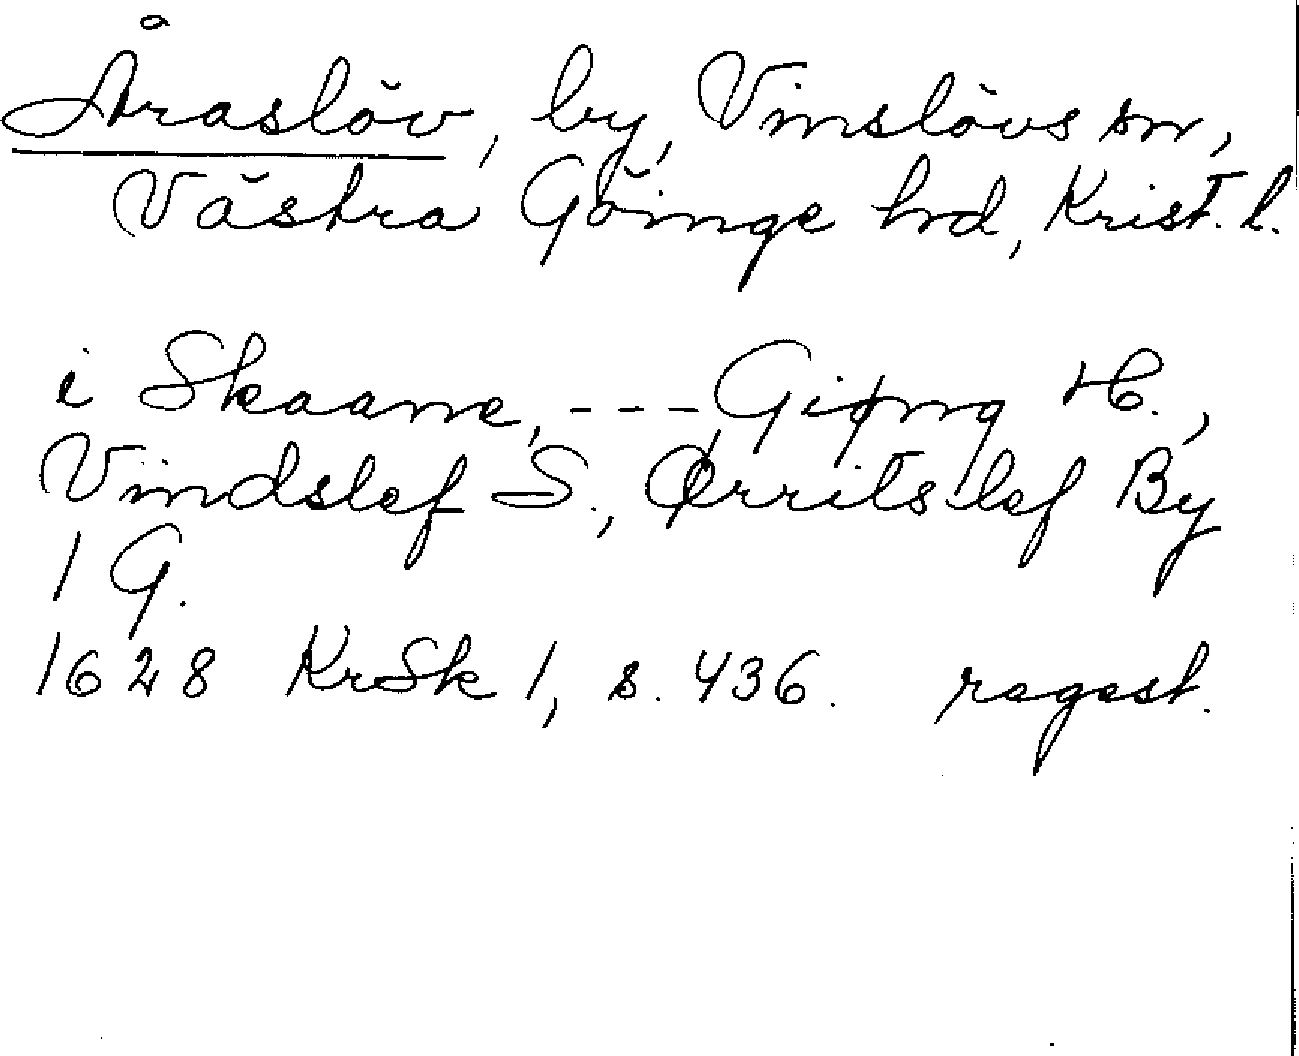 Åraslöv, by, Vinslövs sn,
Västra Göinge hd, Krist. l.
i Skaane, --- Giøng H.,
Vindslef S., Ørritslef By
1 G.
1628 KrSk 1, s. 436. regest.